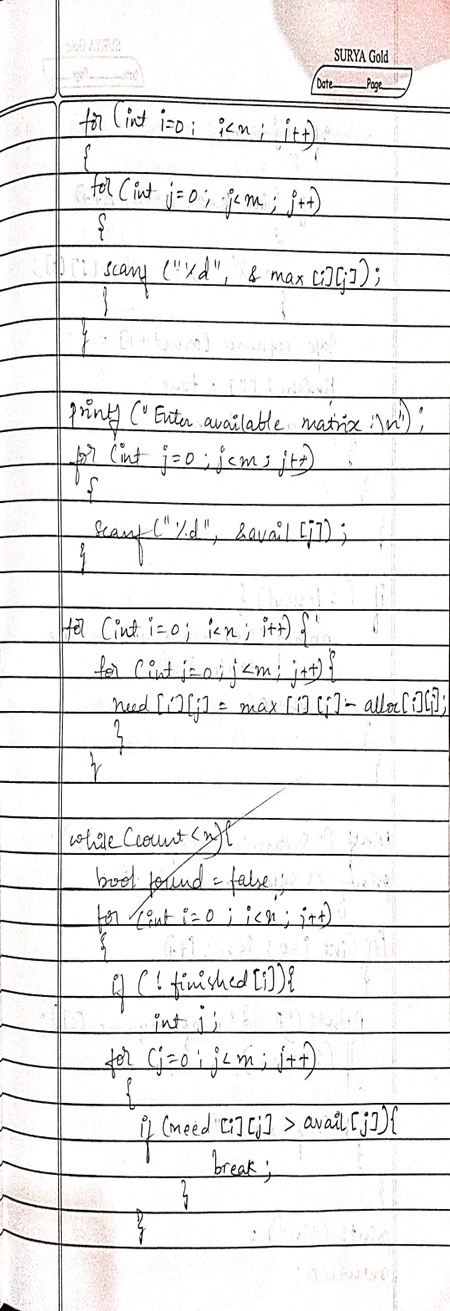 SURYA Gold
Date Page
for (int i=0; i<n; i++)
{
for (int j=0; j<m; j++)
{
scanf ("%d", & max [i][j]);
}
}
printf ("Enter available matrix :\n");
for (int j=0; j<m; j++)
{
scanf ("%d", &avail [j]);
}
for (int i=0; i<n; i++) {
for (int j=0; j<m; j++) {
need [i][j] = max [i][j] - alloc[i][j];
}
}
while (count < n) {
bool found = false;
for (int i=0; i<n; i++)
{
if (! finished [i]) {
int j;
for (j=0; j<m; j++)
{
if (need [i][j] > avail [j]) {
break;
}
}